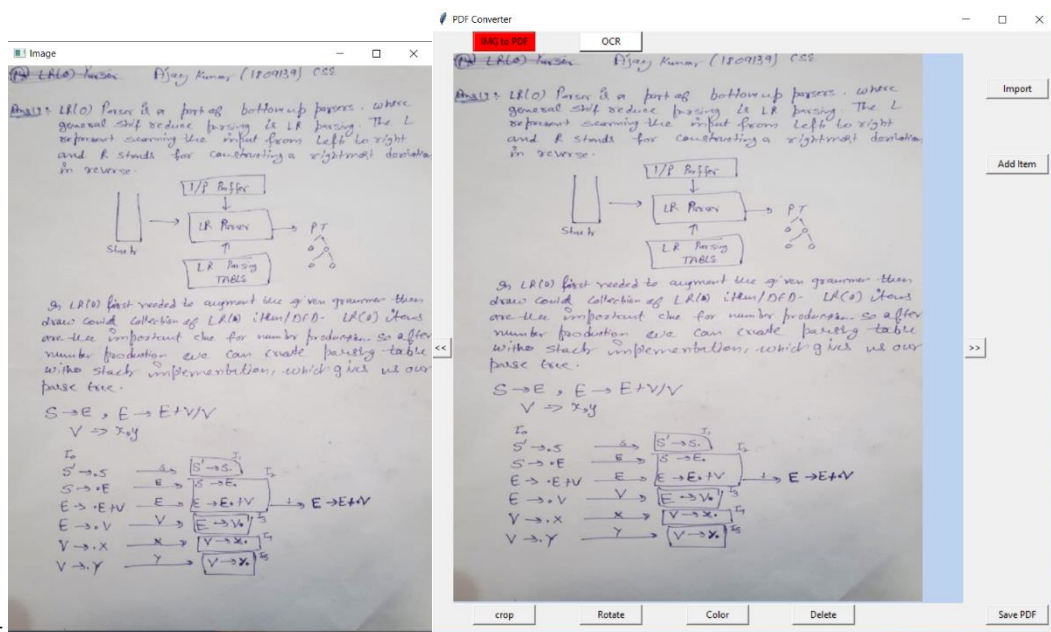 Image
LR(0) Parser Ajay Kumar (1809139) CSE
Ans 1> : LR(0) Parser is a part of bottom up parsers. where
general shif reduce parsing is LR parsing. The L
represent scanning the input from Left to right
and R stands for constructing a rightmost
in reverse.
I/P Buffer
LR Parser
PT
Stack
LR Parsing
TABLS
In LR(0) first needed to augment the given grammer then
draw collection of LR(0) item/DFD- LR(0) items
are the important che for number production. so after
number production we can create parsing table
withe stack implementation, which gives us our
parse tree.
S→E , E → E+V/V
V => x,y
I₀
S'→.S S S'→S. I₁
S→·E E S→E. I₂
E→·E+V E E→E.+V + E→E+.V
E→.V V E→V. I₃
V→.X X V→X. I₄
V→.Y Y V→Y. I₅
PDF Converter
IMG to PDF OCR
LR(0) Parser Ajay Kumar (1809139) CSE
Ans 1> : LR(0) Parser is a part of bottom up parsers. where
general shif reduce parsing is LR parsing. The L
represent scanning the input from Left to right
and R stands for constructing a rightmost
in reverse.
I/P Buffer
LR Parser
PT
Stack
LR Parsing
TABLS
In LR(0) first needed to augment the given grammer then
draw collection of LR(0) item/DFD- LR(0) items
are the important che for number production. so after
number production we can create parsing table
withe stack implementation, which gives us our
parse tree.
S→E , E → E+V/V
V => x,y
I₀
S'→.S S S'→S. I₁
S→·E E S→E. I₂
E→·E+V E E→E.+V + E→E+.V
E→.V V E→V. I₃
V→.X X V→X. I₄
V→.Y Y V→Y. I₅
Import
Add Item
<<
>>
crop Rotate Color Delete Save PDF